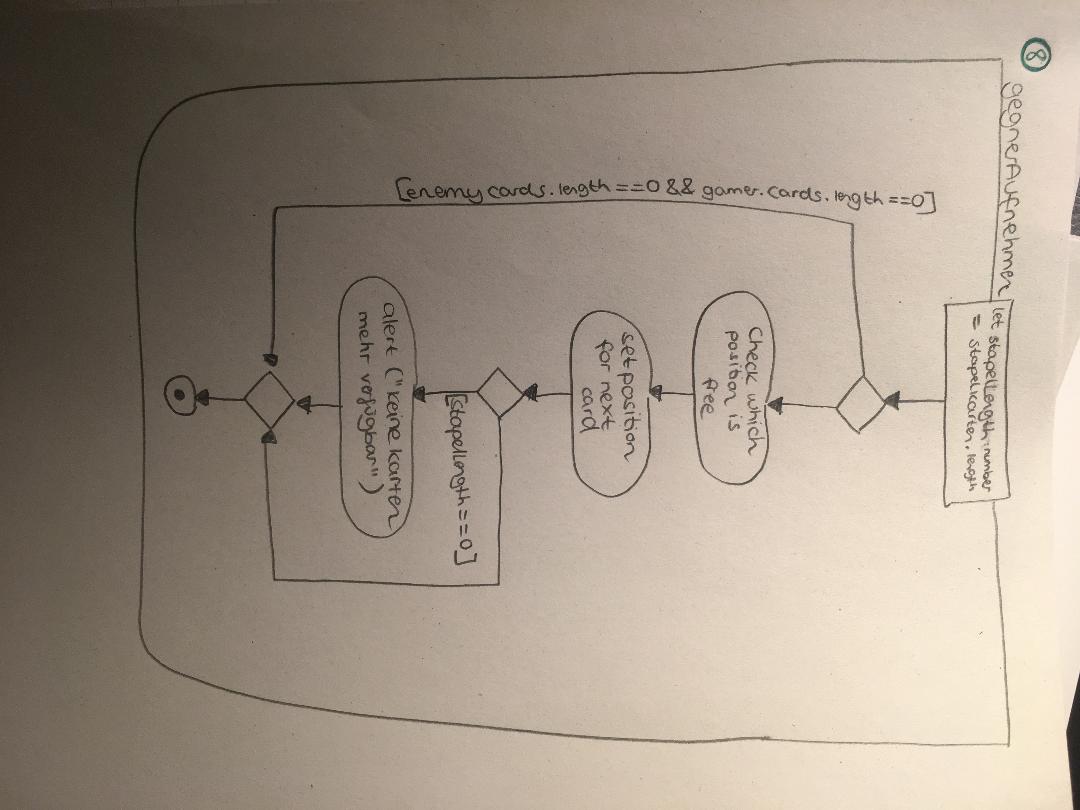 8
gegnerAufnehmen
let stapelLength:number
= stapelkarten.length
[enemycards.length==0 && gamer.cards.length==0]
Check which
position is
free
set position
for next
card
[stapelLength==0]
alert ("keine karten
mehr verfügbar")